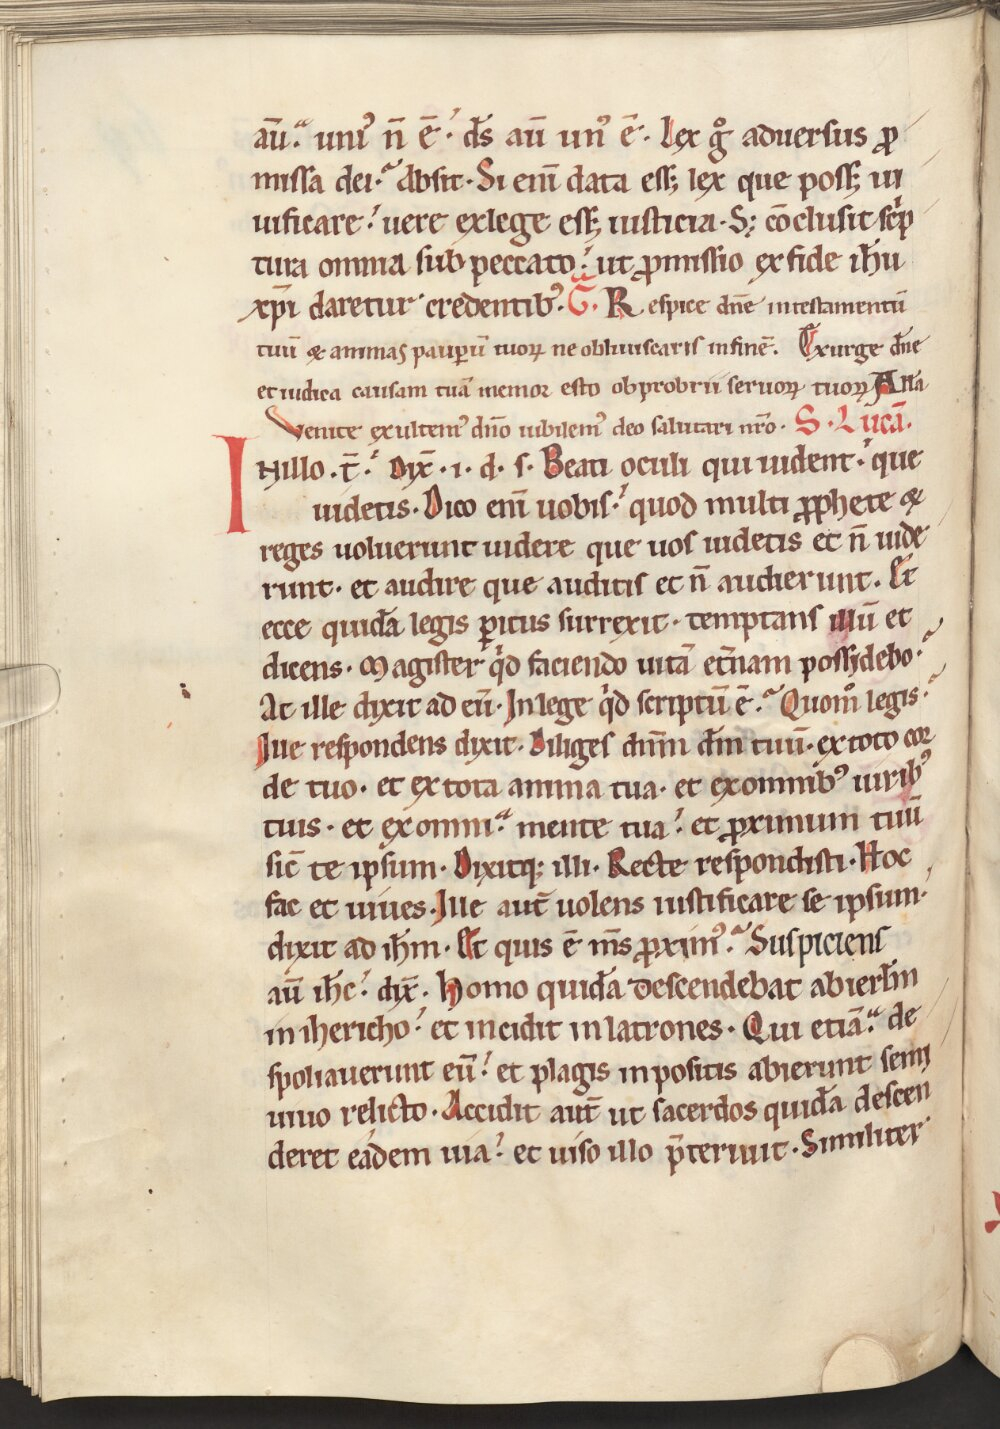 aū. uni᷒ n̄ ē. d̄s aū un᷒ ē. Lex g̊ aduersus ꝓ
missa dei. Absit. Si enī data ess; lex que poss; ui
uificare. uere exlege ess; iusticia. S; cōclusit sc̄p
tura omnia sub peccato. ut ꝓmissio exfide ih̄u
xp̄i daretur credentib᷒. G̅. Respice dn̄e intestamentū
tuū & animas pauꝑū tuoꝝ ne obliuiscaris infinē. Exurge dn̄e
et iudica causam tuā memor esto obprobrii seruoꝝ tuoꝝ Alla
Venite exultem᷒ dn̄o iubilem᷒ deo salutari nr̄o. S. Lucā.
INillo. t̄. Dix̄. i. d. s. Beati oculi qui uident. que
uidetis. Dico enī uobis. quod multi ꝓphete &
reges uoluerunt uidere que uos uidetis et n̄ uide
runt. et audire que auditis et n̄ audierunt. Et
ecce quidā legis ꝑitus surrexit. temptans illū et
dicens. Magister qͥd faciendo uitā et̄nam possidebo.
At ille dixit ad eū. Inlege qͥd scriptū ē. Quom̊ legis.
Ille respondens dixit. Diliges dn̄m dm̄ tuū. extoto cor
de tuo. et extota anima tua. et exomnib᷒ uirib᷒
tuis. et exomni. mente tua. et ꝓximum tuū
sic̄ te ipsum. Dixitq; illi. Recte respondisti. Hoc
fac et uiues. Ille aut̄ uolens iustificare se ipsum.
dixit ad ih̄m. Et quis ē m̄s ꝓxim᷒. Suspiciens
aū ih̄c. dix̄. Homo quidā descendebat abierl̄m
inihericho. et incidit inlatrones. Qui etiā. de
spoliauerunt eū. et plagis inpositis abierunt semi
uiuo relicto. Accidit aut̄ ut sacerdos quidā descen
deret eādem uia. et uiso illo p̄teriuit. Similiter